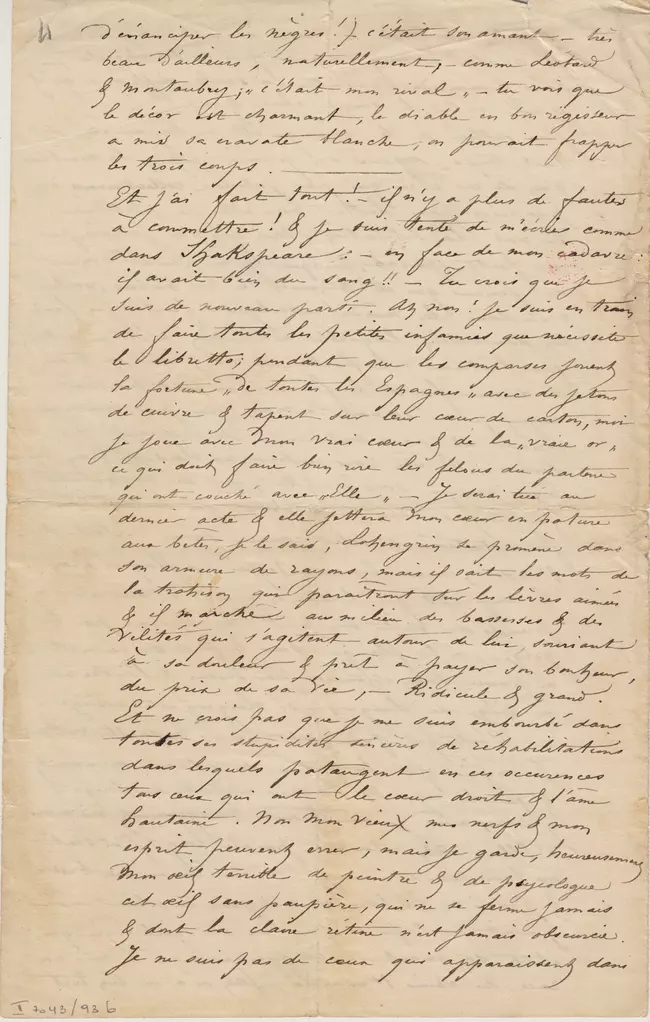 4
d'émanciper les nègres!) c'était son amant – très
beau d'ailleurs, naturellement, – comme Léotard
& Montaubry; "c'était mon rival" – tu vois que
le décor est charmant, le diable en bon régisseur
a mis sa cravate blanche, on pourrait frapper
les trois coups.
Et j'ai fait tout! – il n'y a plus de fautes
à commettre! & je suis tenté de m'écrier comme
dans Shakspeare: – en face de mon cadavre:
il avait bien du sang!! – Tu crois que je
suis de nouveau parti. Ah non! je suis en train
de faire toutes les petites infamies que nécessite
le libretto; pendant que les comparses jouent
la fortune "de toutes les Espagnes" avec des jetons
de cuivre & tapent sur leur cœur de carton, moi
je joue avec mon vrai cœur & de la "vraie or",
ce qui doit faire bien rire les filous du parterre
qui ont couché avec "Elle" – Je serai tué au
dernier acte & elle jettera mon cœur en pâture
aux bêtes, je le sais, Lohengrin se promène dans
son armure de rayons, mais il sait les mots de
la trahison qui paraîtront sur les lèvres aimées
& il marche au milieu des bassesses & des
vilités qui s'agitent autour de lui, souriant
à sa douleur & prêt à payer son bonheur,
du prix de sa vie, – Ridicule & grand.
Et ne crois pas que je me suis embourbé dans
toutes ses stupidités sincères de réhabilitations
dans lesquels pataugent en ces occurences
tous ceux qui ont le cœur droit & l'âme
hautaine. Non mon vieux mes nerfs & mon
esprit peuvent errer, mais je garde, heureusement
mon œil terrible de peintre & de psycologue
cet œil sans paupière, qui ne se ferme jamais
& dont la claire rétine n'est jamais obscurcie.
Je ne suis pas de ceux qui apparaissent dans
II 7043/93 b